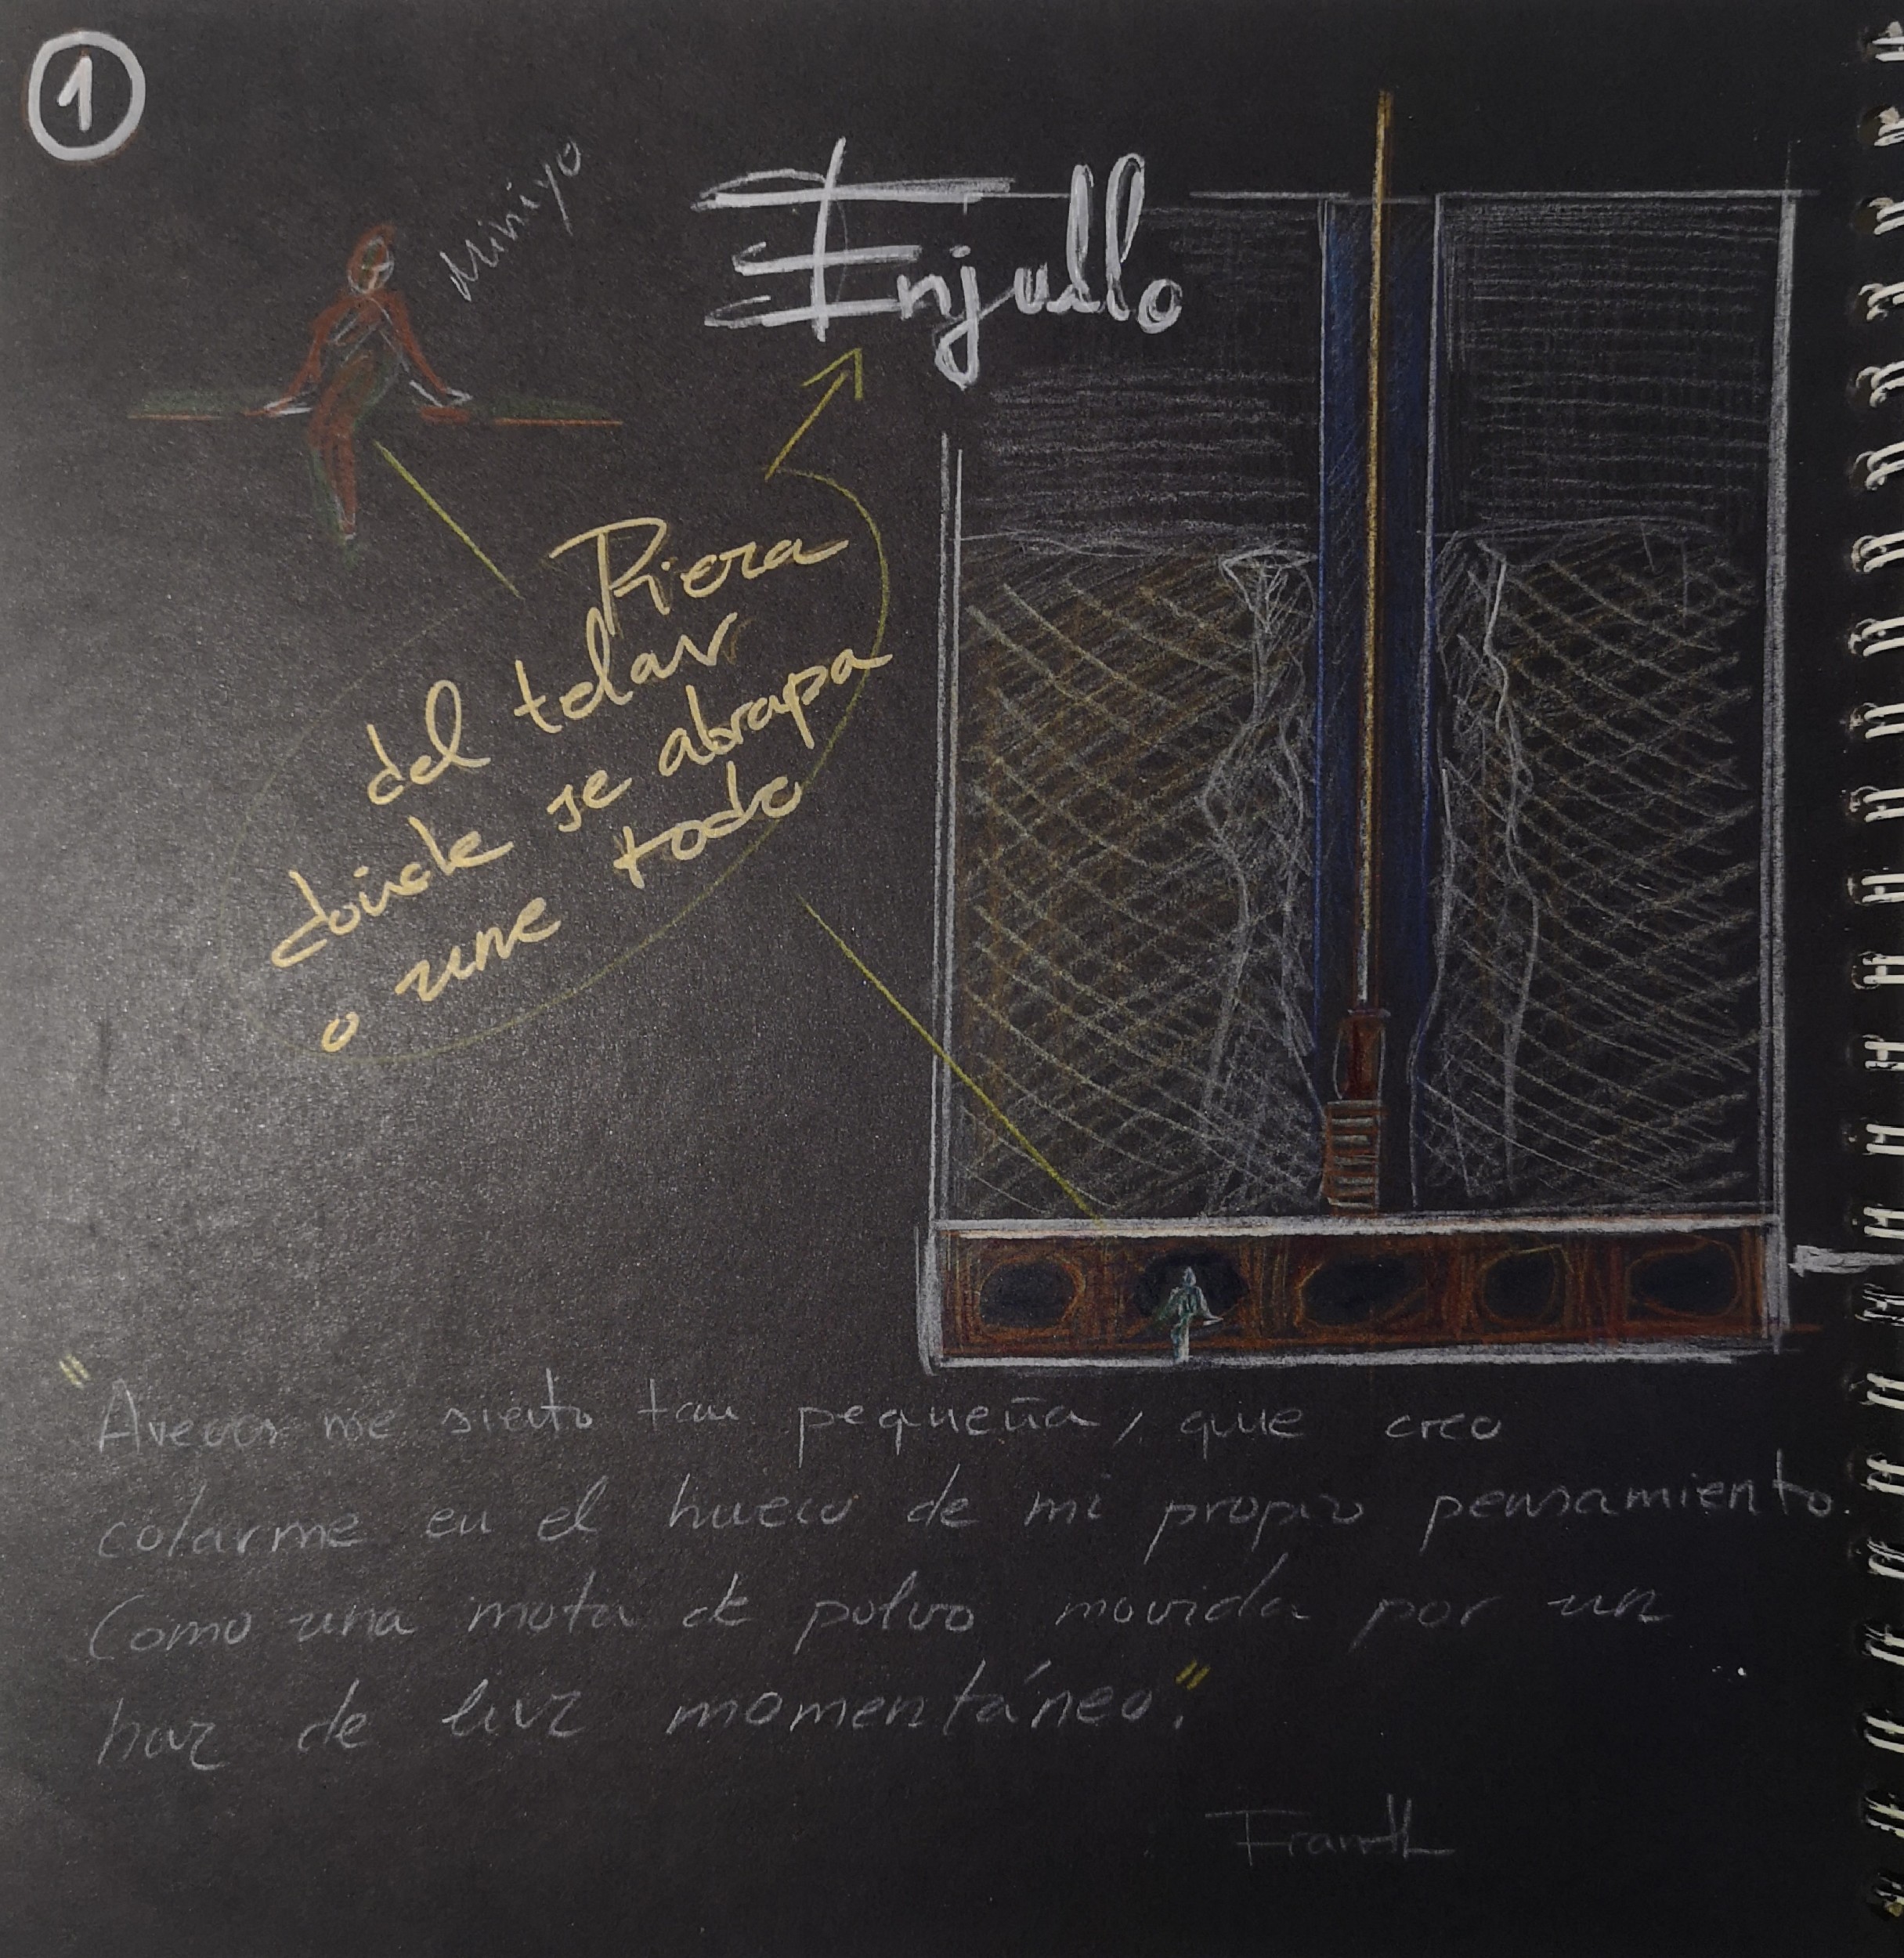 1
Miniyo
Enjullo
Pieza
del telar
donde se abrapa
o une todo
"Aveces me siento tan pequeña, que creo
colarme en el hueco de mi propio pensamiento.
Como una mota de polvo movida por un
haz de luz momentáneo".